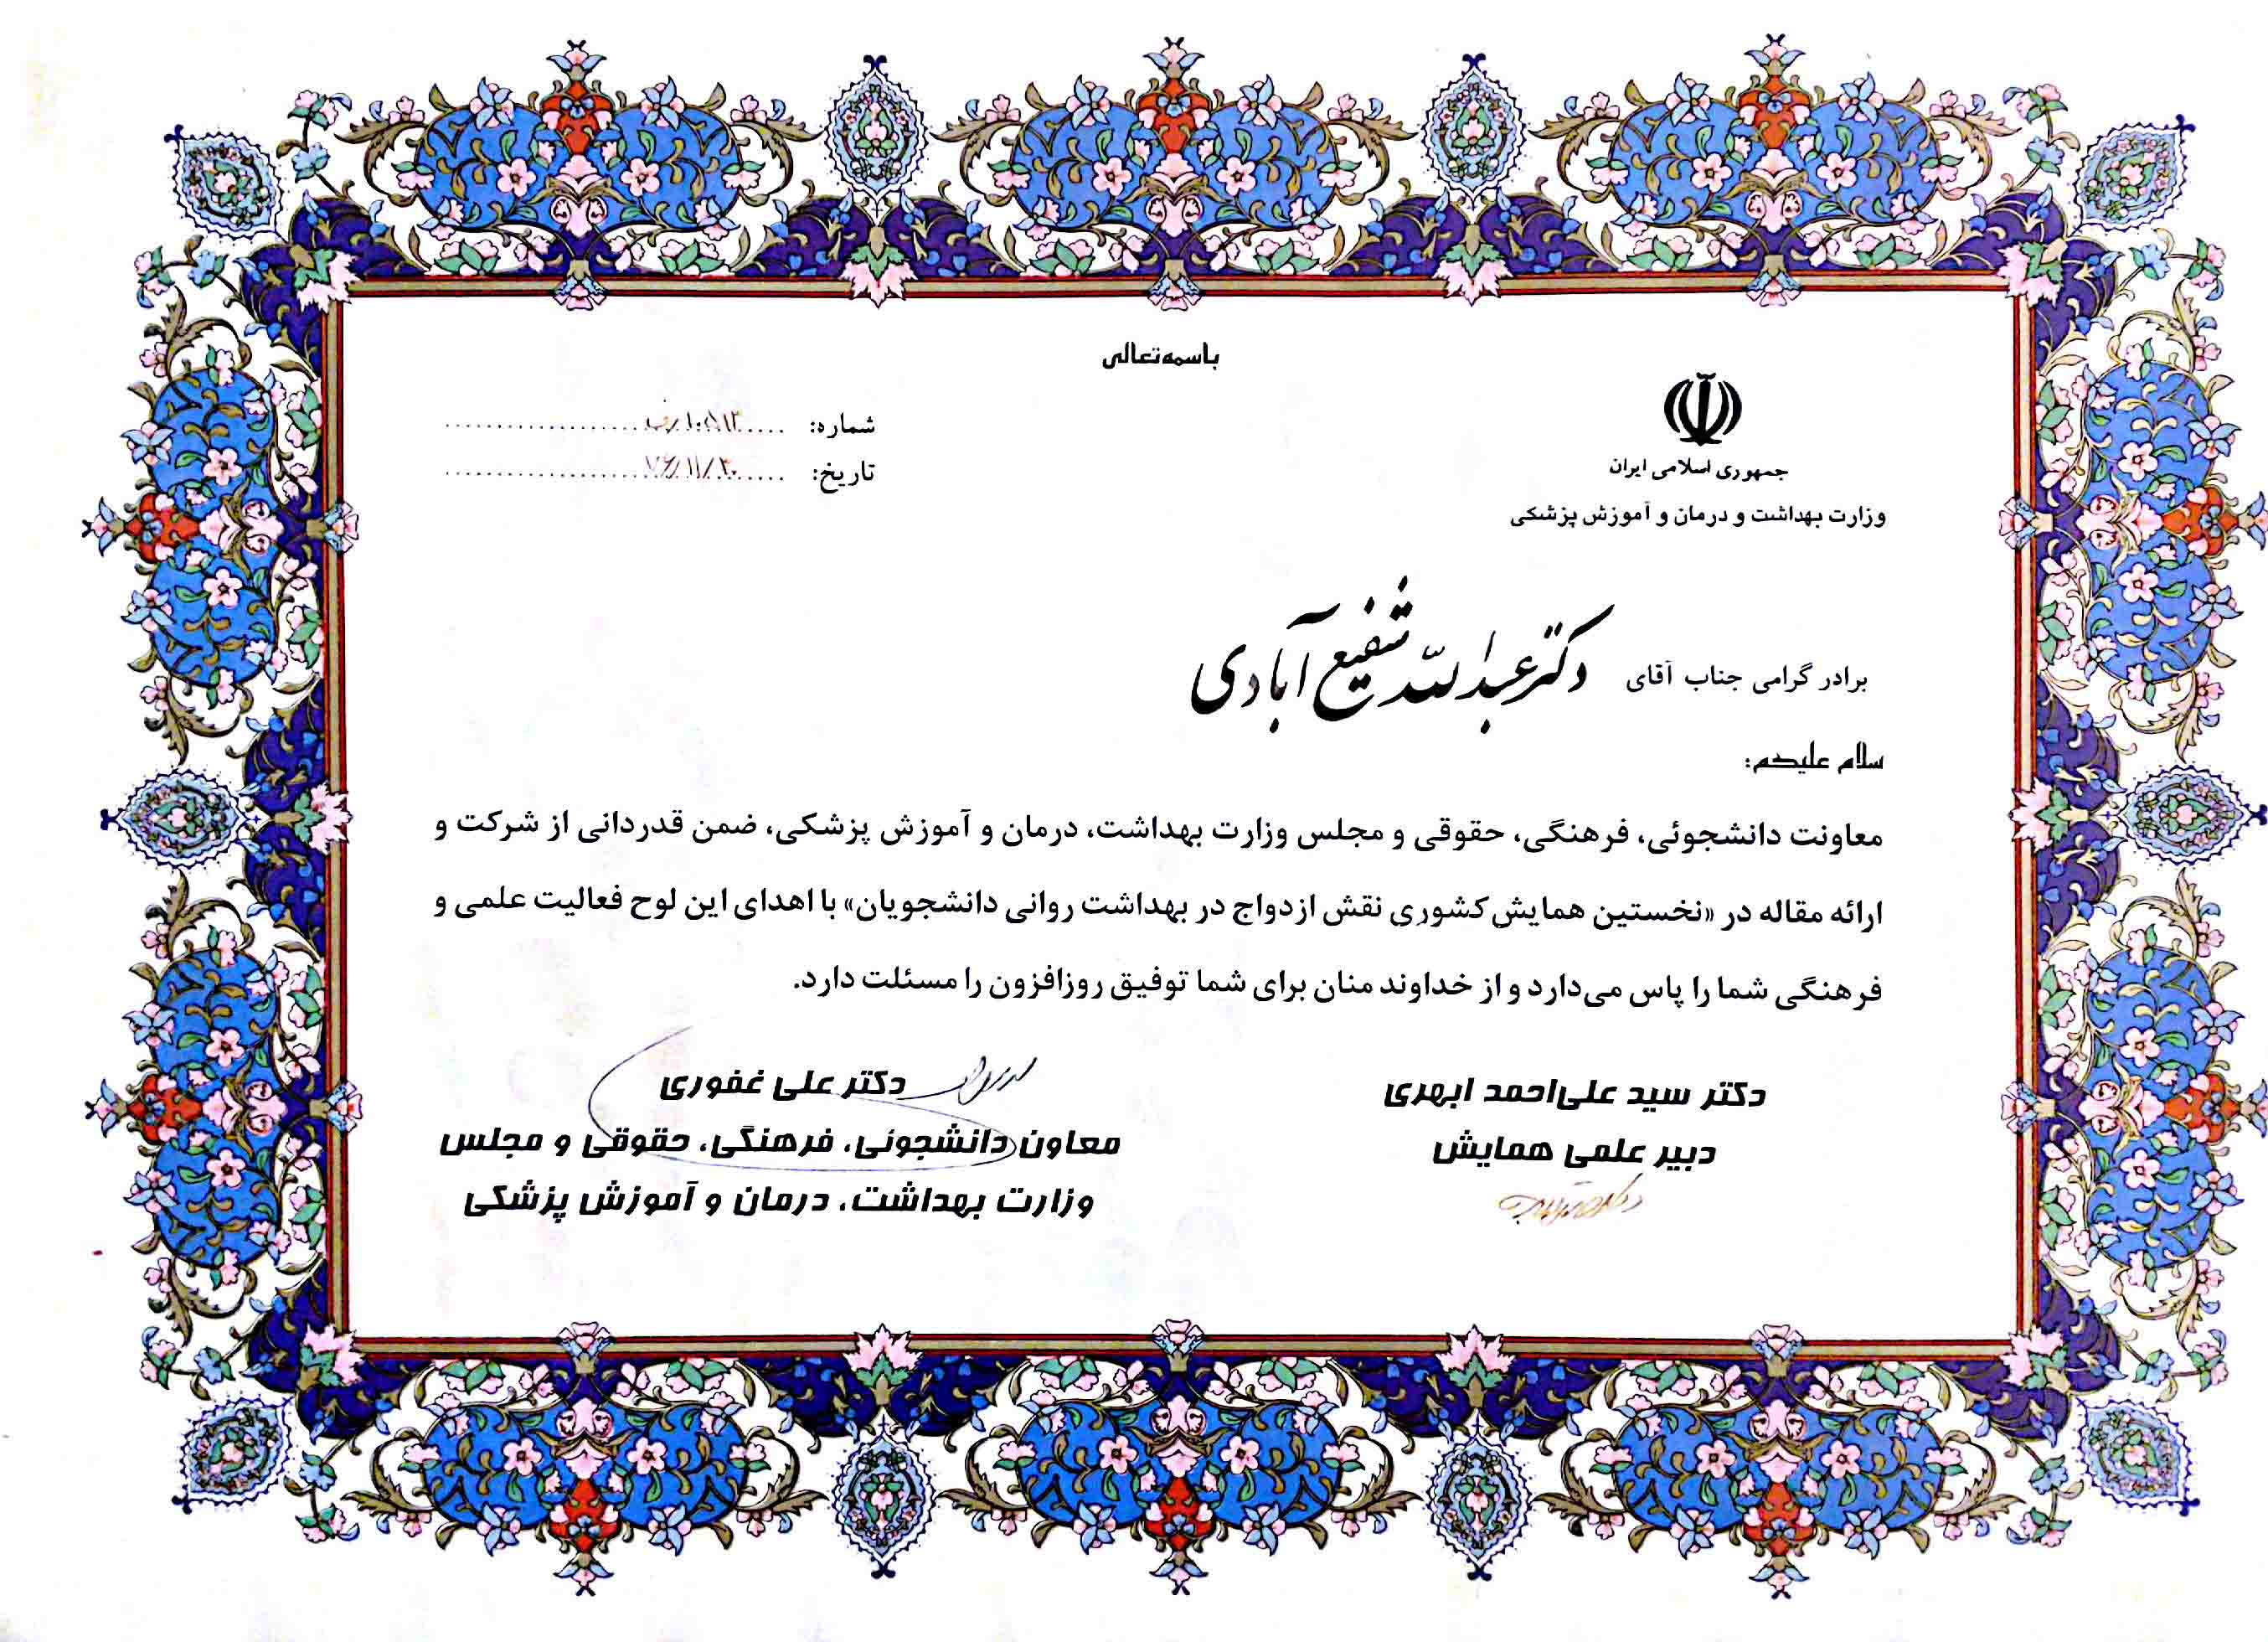 باسمه‌تعالی
جمهوری اسلامی ایران
وزارت بهداشت و درمان و آموزش پزشکی
شماره:
تاریخ: ۷۶/۱۱/۳۰
برادر گرامی جناب آقای دکتر عبدالله شفیع آبادی
سلام علیکم:
معاونت دانشجوئی، فرهنگی، حقوقی و مجلس وزارت بهداشت، درمان و آموزش پزشکی، ضمن قدردانی از شرکت و
ارائه مقاله در «نخستین همایش کشوری نقش ازدواج در بهداشت روانی دانشجویان» با اهدای این لوح فعالیت علمی و
فرهنگی شما را پاس می‌دارد و از خداوند منان برای شما توفیق روزافزون را مسئلت دارد.
دکتر سید علی‌احمد ابهری
دبیر علمی همایش
دکتر علی غفوری
معاون دانشجوئی، فرهنگی، حقوقی و مجلس
وزارت بهداشت، درمان و آموزش پزشکی